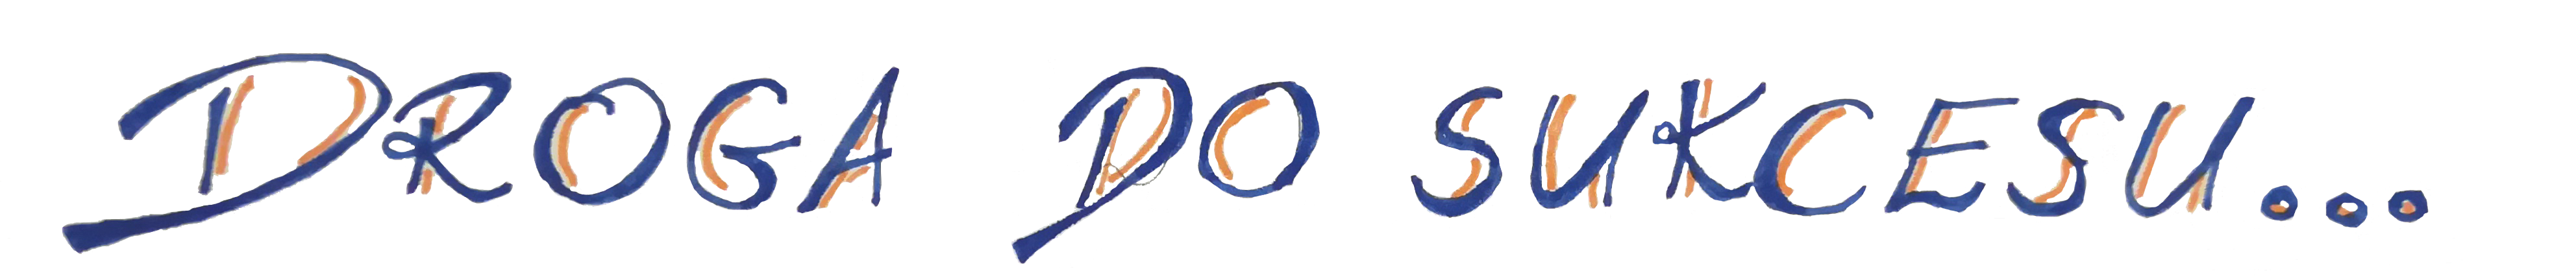 DROGA DO SUKCESU...